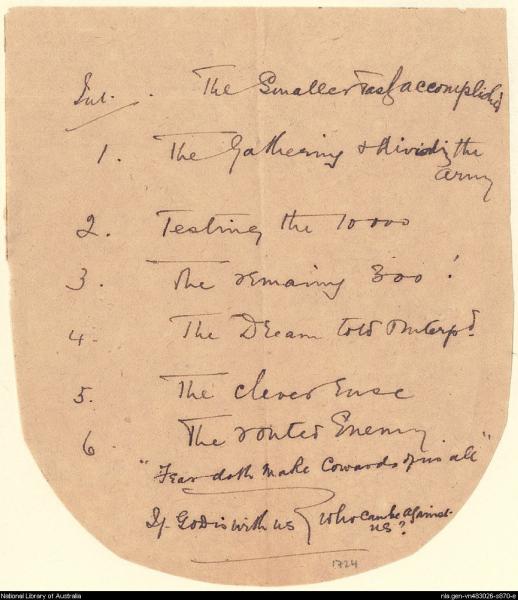 Int. . The Smaller Task accomplished
1. The Gathering & dividing the
army
2. Testing the 10000
3. The remaing 300!
4. The Dream told & Interpd.
5. The clever ruse
6. The routed Enemy
"Fear doth make Cowards of us all"
If God is with us } who can be against
us?
1724
National Library of Australia
nla.gen-vn483026-s870-e